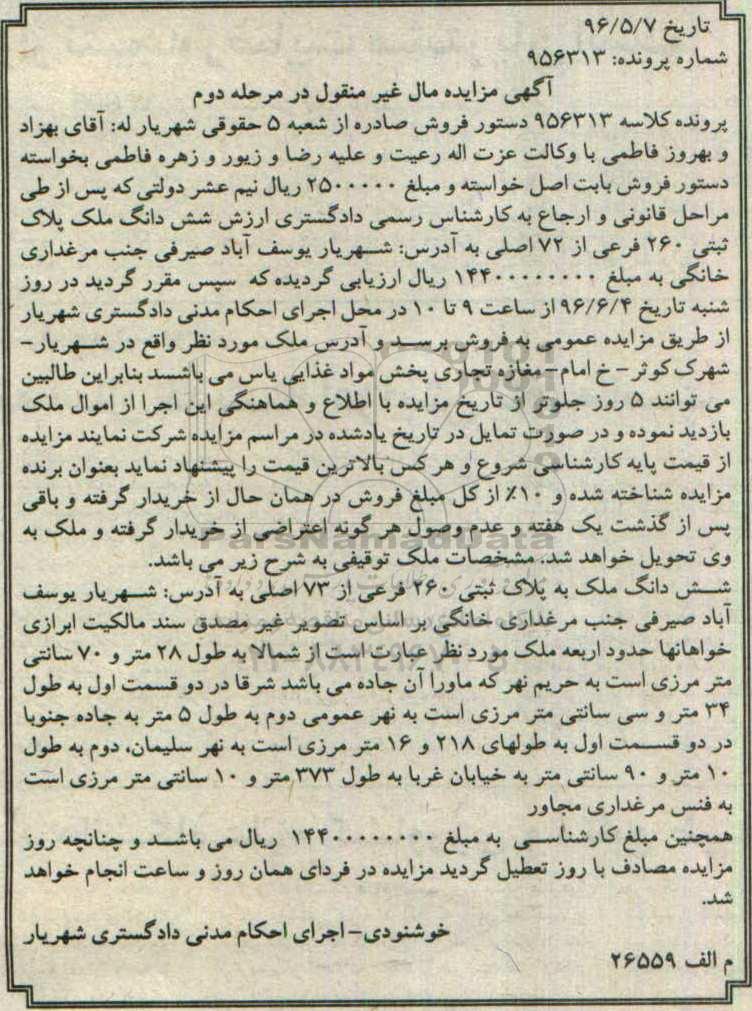 تاریخ ۹۶/۵/۷
شماره پرونده: ۹۵۶۳۱۳
آگهی مزایده مال غیر منقول در مرحله دوم
پرونده کلاسه ۹۵۶۳۱۳ دستور فروش صادره از شعبه ۵ حقوقی شهریار له: آقای بهزاد
و بهروز فاطمی با وکالت عزت اله رعیت و علیه رضا و زیور و زهره فاطمی بخواسته
دستور فروش بابت اصل خواسته و مبلغ ۲۵۰۰۰۰۰ ریال نیم عشر دولتی که پس از طی
مراحل قانونی و ارجاع به کارشناس رسمی دادگستری ارزش شش دانگ ملک پلاک
ثبتی ۲۶۰ فرعی از ۷۲ اصلی به آدرس: شهریار یوسف آباد صیرفی جنب مرغداری
خانگی به مبلغ ۱۴۴۰۰۰۰۰۰۰۰ ریال ارزیابی گردیده که سپس مقرر گردید در روز
شنبه تاریخ ۹۶/۶/۴ از ساعت ۹ تا ۱۰ در محل اجرای احکام مدنی دادگستری شهریار
از طریق مزایده عمومی به فروش برسد و آدرس ملک مورد نظر واقع در شهریار-
شهرک کوثر - خ امام - مغازه تجاری پخش مواد غذایی یاس می باشسد بنابراین طالبین
می توانند ۵ روز جلوتر از تاریخ مزایده با اطلاع و هماهنگی این اجرا از اموال ملک
بازدید نموده و در صورت تمایل در تاریخ یادشده در مراسم مزایده شرکت نمایند مزایده
از قیمت پایه کارشناسی شروع و هر کس بالاترین قیمت را پیشنهاد نماید بعنوان برنده
مزایده شناخته شده و ۱۰٪ از کل مبلغ فروش در همان حال از خریدار گرفته و باقی
پس از گذشت یک هفته و عدم وصول هر گونه اعتراضی از خریدار گرفته و ملک به
وی تحویل خواهد شد. مشخصات ملک توقیفی به شرح زیر می باشد.
شش دانگ ملک به پلاک ثبتی ۲۶۰ فرعی از ۷۳ اصلی به آدرس: شهریار یوسف
آباد صیرفی جنب مرغداری خانگی بر اساس تصویر غیر مصدق سند مالکیت ابرازی
خواهانها حدود اربعه ملک مورد نظر عبارت است از شمالا به طول ۲۸ متر و ۷۰ سانتی
متر مرزی است به حریم نهر که ماورا آن جاده می باشد شرقا در دو قسمت اول به طول
۳۴ متر و سی سانتی متر مرزی است به نهر عمومی دوم به طول ۵ متر به جاده جنوبا
در دو قسمت اول به طولهای ۲۱۸ و ۱۶ متر مرزی است به نهر سلیمان. دوم به طول
۱۰ متر و ۹۰ سانتی متر به خیابان غربا به طول ۳۷۳ متر و ۱۰ سانتی متر مرزی است
به فنس مرغداری مجاور
همچنین مبلغ کارشناسی به مبلغ ۱۴۴۰۰۰۰۰۰۰۰ ریال می باشد و چنانچه روز
مزایده مصادف با روز تعطیل گردید مزایده در فردای همان روز و ساعت انجام خواهد
شد.
خوشنودی - اجرای احکام مدنی دادگستری شهریار
م الف ۲۶۵۵۹
ParsNamadData